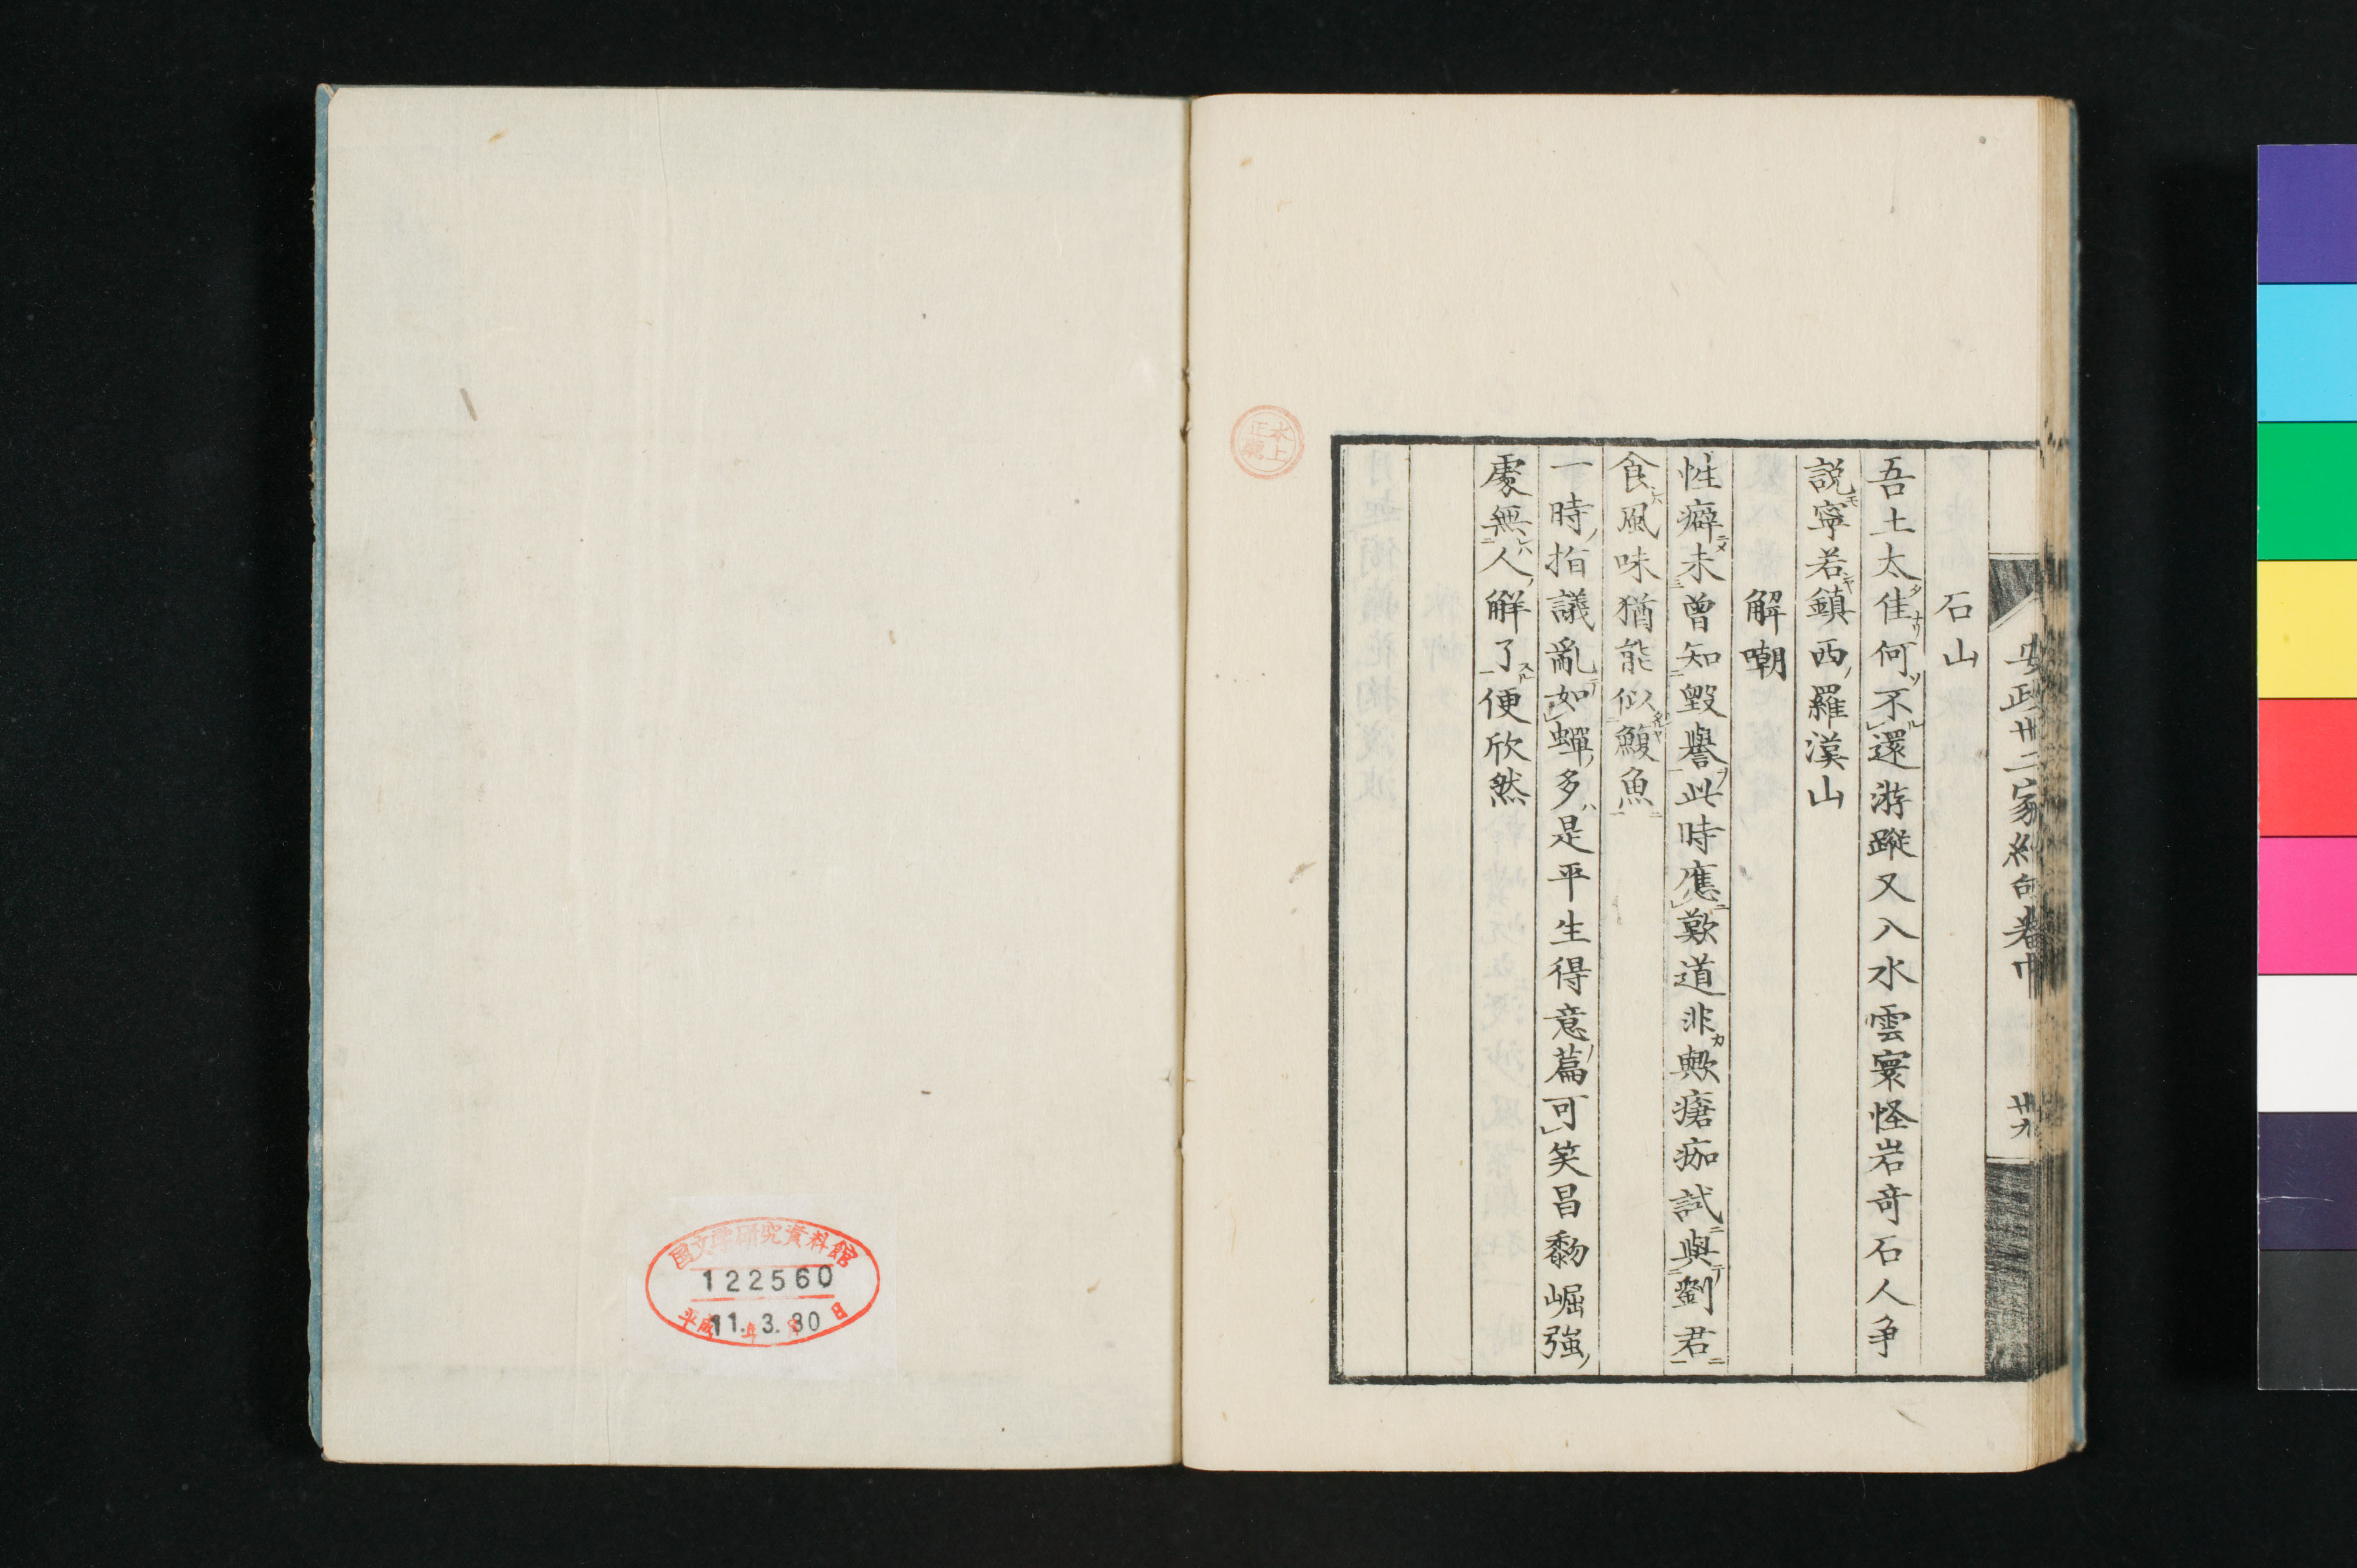 安政卅二家絶句 卷中 卅九
石山
吾土太佳何不還游蹤又入水雲寰怪岩奇石人爭
説寧若鎮西羅漢山
解嘲
性癖未曾知毀譽此時應歎道非歟瘡痂試與劉君
食風味猶能似鰒魚
一時指議亂如蟬多是平生得意篇可笑昌黎崛強
處無人解了便欣然
水上
正
国文学研究資料館
122560
平成11年3月30日